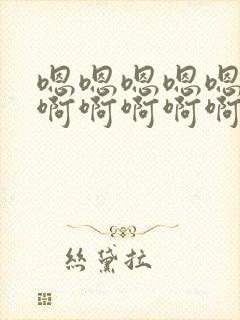 嗯嗯嗯嗯嗯
啊啊啊啊啊
絲黛拉